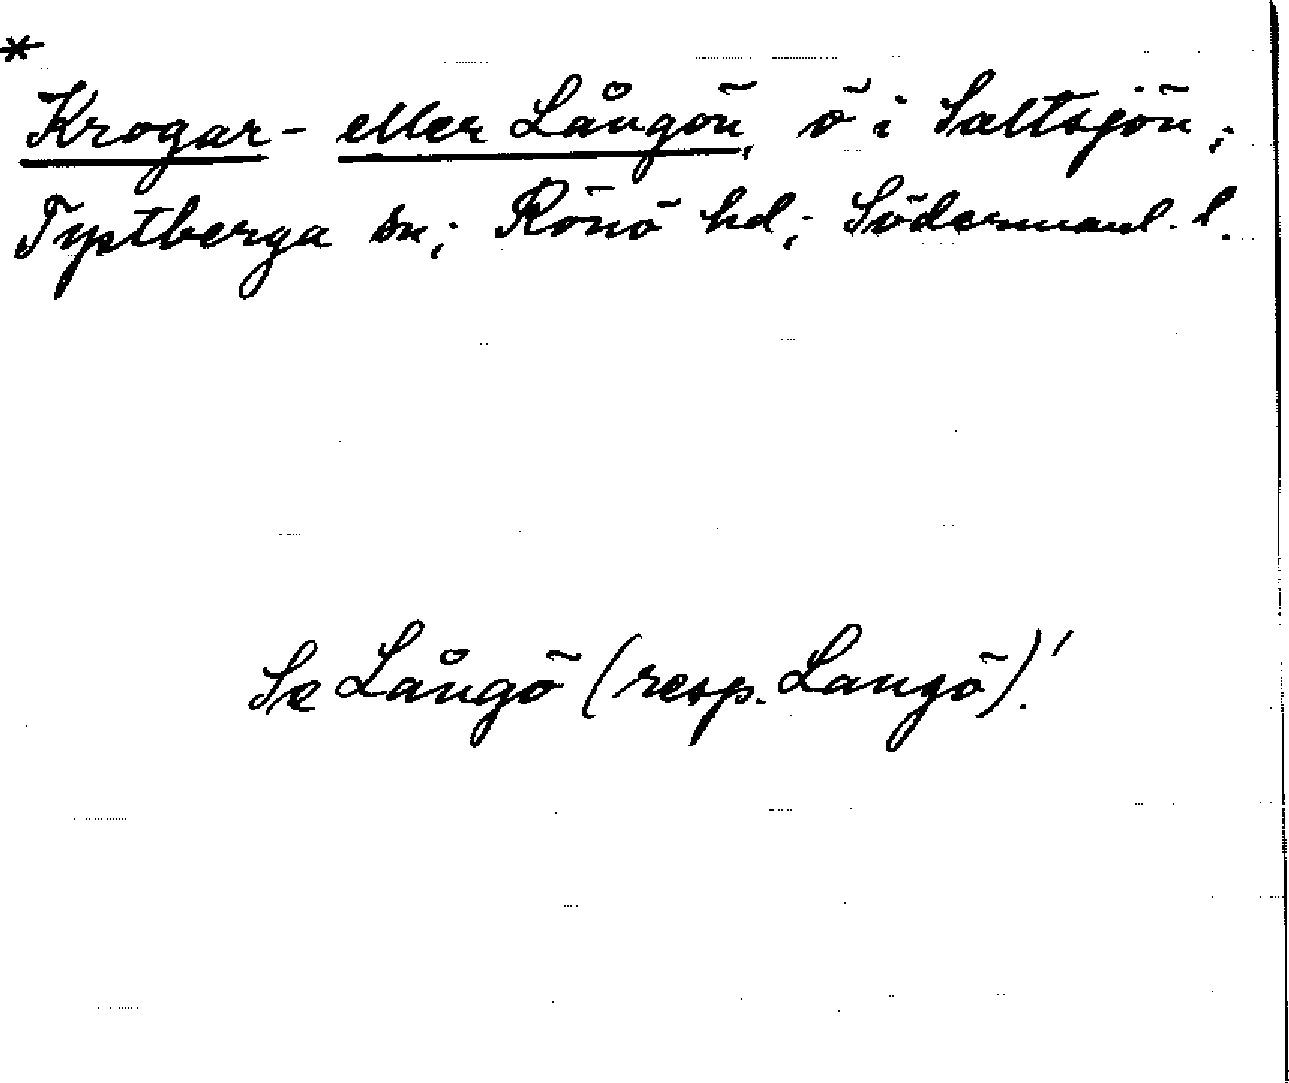 *
Krogar- eller Långön, ö i Saltsjön;
Tystberga sn; Rönö hd; Södermanl. l.
Se Långö (resp. Langö)!